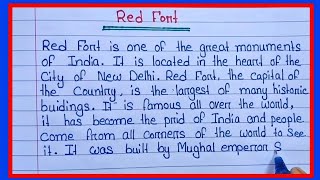 Red Font
Red Font is one of the great monuments
of India. It is located in the heart of the
City of New Delhi. Red Font, the capital of
the Country, is the largest of many historic
buidings. It is famous all over the world,
it has become the prid of India and people
Come from all corners of the world to See
it. It was built by Mughal emperron S